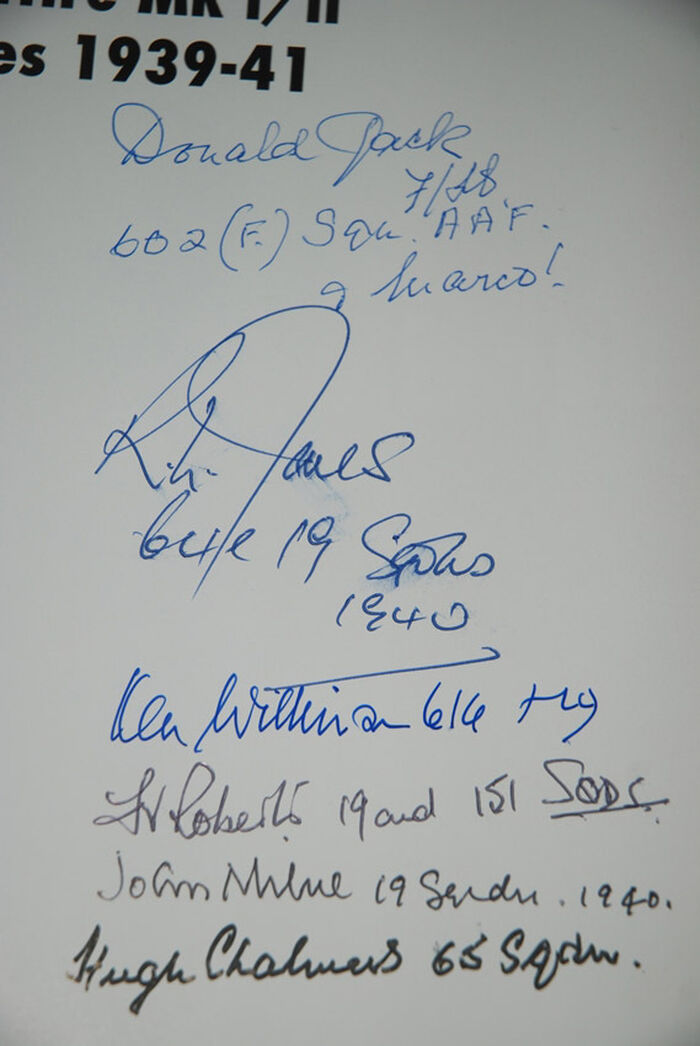 Mk I/II
es 1939-41
Donald Jack
F/Lt
602 (F.) Sqn. A.A.F.
a Marco!
R.L. Jones
64 & 19 Sqdns
1940
Ken Wilkinson 616 + 19
Roberts 19 and 151 Sqds.
John Milne 19 Sqdn. 1940.
Hugh Chalmers 65 Sqdn.